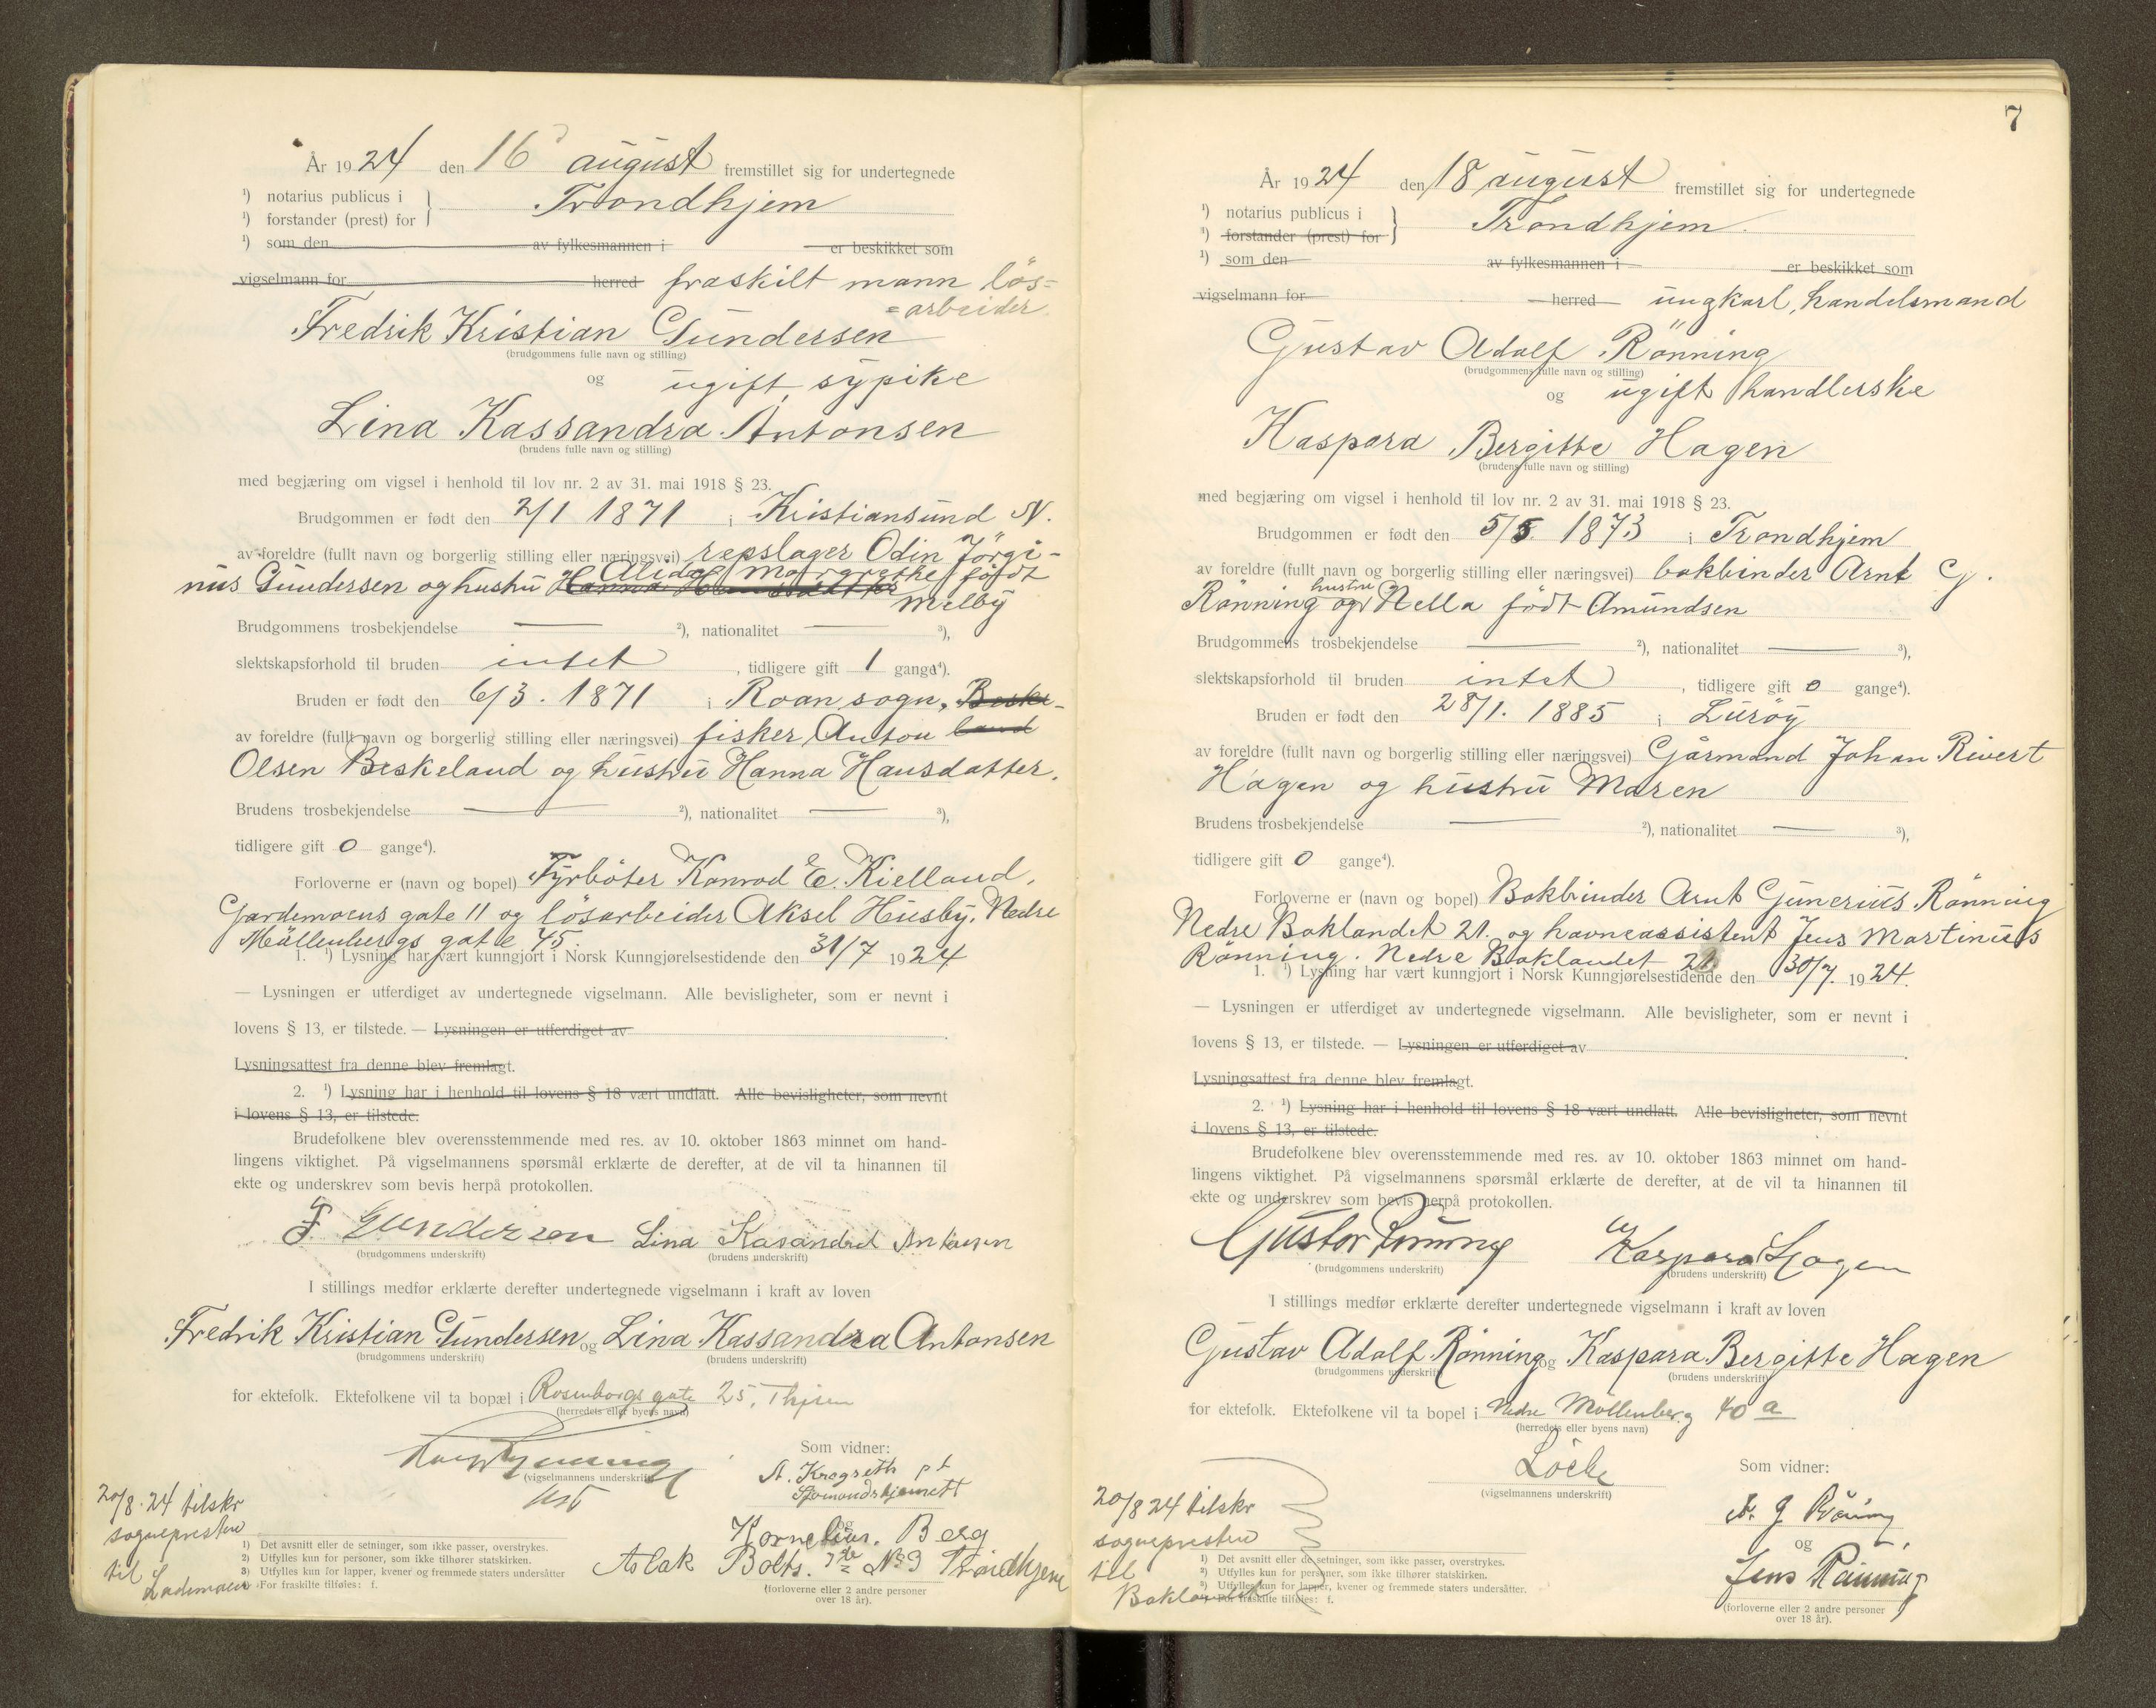 År 1924 den 16 august fremstillet sig for undertegnede
¹) notarius publicus i } Trondhjem
¹) forstander (prest) for
¹) som den av fylkesmannen i er beskikket som
vigselmann for herred fraskilt mann løs=
=arbeider.
Fredrik Kristian Gundersen
(brudgommens fulle navn og stilling)
og ugift, sypike
Lina Kassandra Antonsen
(brudens fulle navn og stilling)
med begjæring om vigsel i henhold til lov nr. 2 av 31. mai 1918 § 23.
Brudgommen er født den 2/1 1871 i Kristiansund N.
av foreldre (fullt navn og borgerlig stilling eller næringsvei) repslager Odin Jørgi-
nus Gundersen og hustru Hanna Hansdatter Alida Margrethe født
Melby
Brudgommens trosbekjendelse — ²), nationalitet — ³),
slektskapsforhold til bruden intet, tidligere gift 1 gange⁴).
Bruden er født den 6/3. 1871 i Roan sogn, Beske-
av foreldre (fullt navn og borgerlig stilling eller næringsvei) fisker Anton land
Olsen Beskeland og hustru Hanna Hansdatter.
Brudens trosbekjendelse — ²), nationalitet — ³),
tidligere gift 0 gange⁴).
Forloverne er (navn og bopel) Fyrbøter Konrad E. Kielland,
Gardemoens gate 11 og løsarbeider Aksel Husby, Nedre
Møllenbergs gate 45.
1. ¹) Lysning har vært kunngjort i Norsk Kunngjørelsestidende den 31/7 1924
— Lysningen er utferdiget av undertegnede vigselmann. Alle bevisligheter, som er nevnt i
lovens § 13, er tilstede. — Lysningen er utferdiget av .
Lysningsattest fra denne blev fremlagt.
2. ¹) Lysning har i henhold til lovens § 18 vært undlatt. Alle bevisligheter, som nevnt
i lovens § 13, er tilstede.
Brudefolkene blev overensstemmende med res. av 10. oktober 1863 minnet om hand-
lingens viktighet. På vigselmannens spørsmål erklærte de derefter, at de vil ta hinannen til
ekte og underskrev som bevis herpå protokollen.
F. Gundersen Lina Kasandra Antonsen
(brudgommens underskrift) (brudens underskrift)
I stillings medfør erklærte derefter undertegnede vigselmann i kraft av loven
Fredrik Kristian Gundersen og Lina Kassandra Antonsen
(brudgommens underskrift) (brudens underskrift)
for ektefolk. Ektefolkene vil ta bopæl i Rosenborgs gate 25, Thjem
(herredets eller byens navn)
Som vidner:
(vigselmannens underskrift)
og
Kornelius. Berg
Aslak Bolts. gde No 9 Trondhjem
(forloverne eller 2 andre personer
over 18 år).
20/8.24 tilskr
sognepresten
til
Lademoen
1) Det avsnitt eller de setninger, som ikke passer, overstrykes.
2) Utfylles kun for personer, som ikke tilhører statskirken.
3) Utfylles kun for lapper, kvener og fremmede staters undersåtter
For fraskilte tilføies: f.
7
År 1924 den 18 august fremstillet sig for undertegnede
¹) notarius publicus i } Trondhjem.
¹) forstander (prest) for
¹) som den av fylkesmannen i er beskikket som
vigselmann for herred ungkarl, handelsmand
Gustav Adolf Rønning
(brudgommens fulle navn og stilling)
og ugift handlerske
Kaspara Bergitte Hagen
(brudens fulle navn og stilling)
med begjæring om vigsel i henhold til lov nr. 2 av 31. mai 1918 § 23.
Brudgommen er født den 5/5. 1873 i Trondhjem
av foreldre (fullt navn og borgerlig stilling eller næringsvei) bokbinder Arnt G.
Rønning og hustru Nella født Amundsen
Brudgommens trosbekjendelse — ²), nationalitet — ³),
slektskapsforhold til bruden intet, tidligere gift 0 gange⁴).
Bruden er født den 28/1. 1885 i Lurøy
av foreldre (fullt navn og borgerlig stilling eller næringsvei) Gårmand Johan Rivert
Hagen og hustru Maren
Brudens trosbekjendelse — ²), nationalitet — ³),
tidligere gift 0 gange⁴).
Forloverne er (navn og bopel) Bokbinder Arnt Gunerius Rønning
Nedre Baklandet 21. og havneassistent Jens Martinus
Rønning. Nedre Baklandet 21.
1. ¹) Lysning har vært kunngjort i Norsk Kunngjørelsestidende den 30/7. 1924.
— Lysningen er utferdiget av undertegnede vigselmann. Alle bevisligheter, som er nevnt i
lovens § 13, er tilstede. — Lysningen er utferdiget av .
Lysningsattest fra denne blev fremlagt.
2. ¹) Lysning har i henhold til lovens § 18 vært undlatt. Alle bevisligheter, som nevnt
i lovens § 13, er tilstede.
Brudefolkene blev overensstemmende med res. av 10. oktober 1863 minnet om hand-
lingens viktighet. På vigselmannens spørsmål erklærte de derefter, at de vil ta hinannen til
ekte og underskrev som bevis herpå protokollen.
Gustav Rønning Kaspara Hagen
(brudgommens underskrift) (brudens underskrift)
I stillings medfør erklærte derefter undertegnede vigselmann i kraft av loven
Gustav Adolf Rønning og Kaspara Bergitte Hagen
(brudgommens underskrift) (brudens underskrift)
for ektefolk. Ektefolkene vil ta bopel i Nedre Møllenberg 40 a
(herredets eller byens navn)
Løcke Som vidner:
(vigselmannens underskrift)
A. G. Rønning
og
Jens Rønning
(forloverne eller 2 andre personer
over 18 år).
20/8 24 tilskr
sognepresten
til
Baklandet
¹) Det avsnitt eller de setninger, som ikke passer, overstrykes.
²) Utfylles kun for personer, som ikke tilhører statskirken.
³) Utfylles kun for lapper, kvener og fremmede staters undersåtter.
For fraskilte tilføies: f.